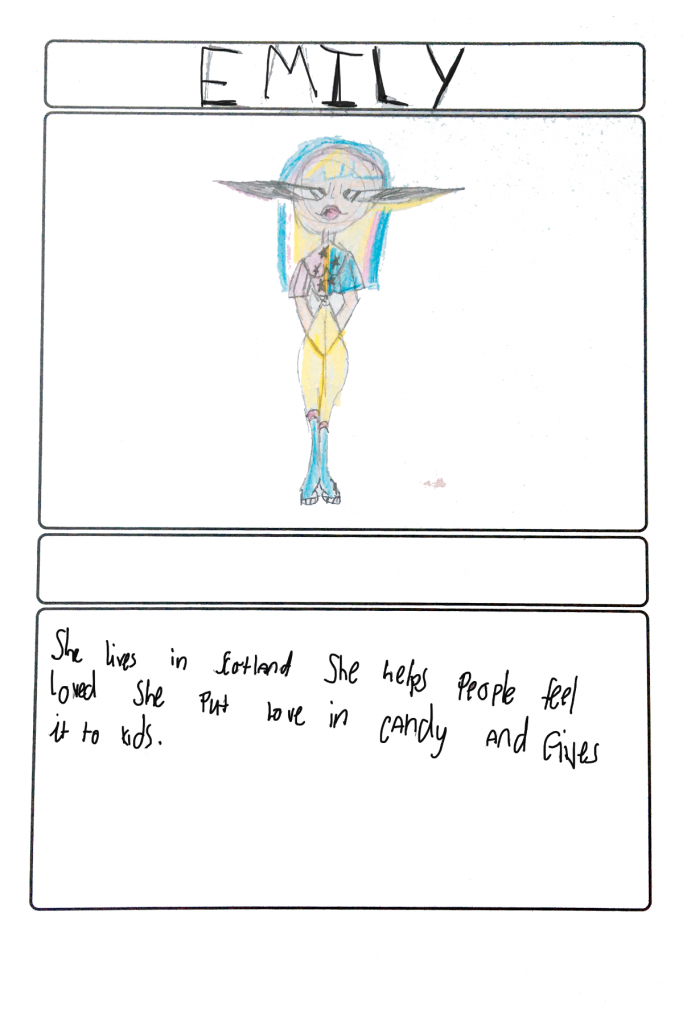 EMILY
She lives in Scotland She helps People feel
Loved She Put Love in CANDY AND Gives
it to kids.